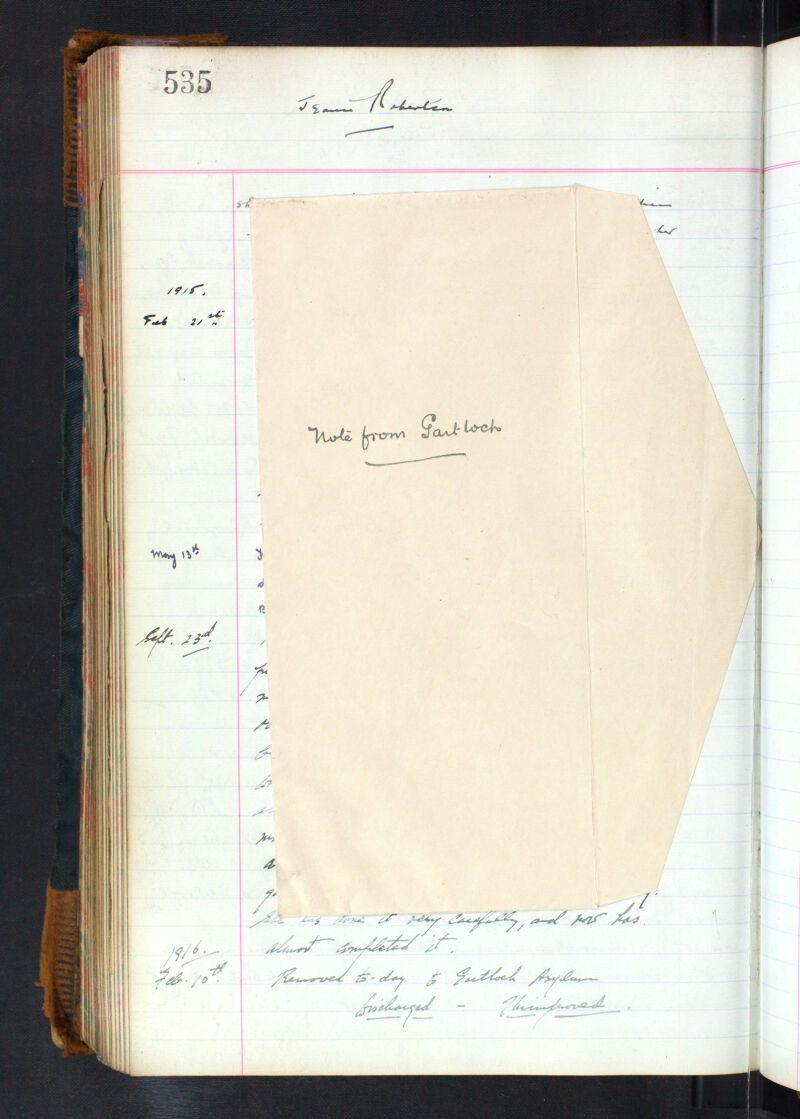 535
Jeanie Robertson
her
1915.
Feb 21st
Note from Gartloch
May 13th
Sept. 23rd.
she has done it very carefully, and now has
1916.
almost completed it.
Feb. 10th.
Removed to-day to Gartloch Asylum
Discharged - Unimproved.